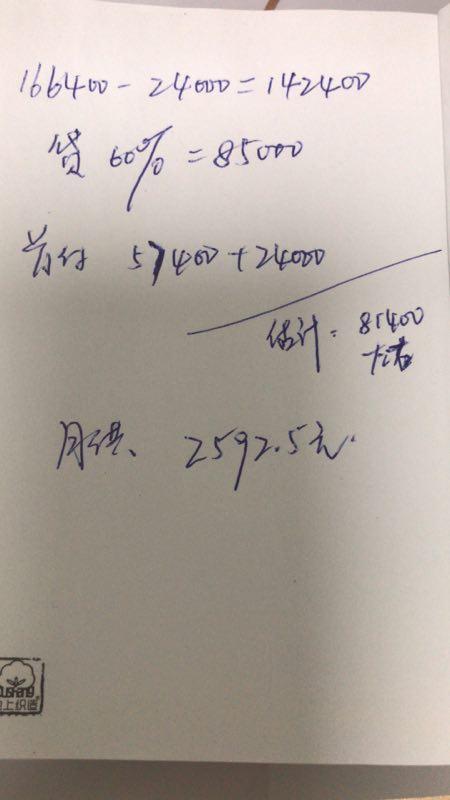 166400-24000=142400
贷 60% =85000
首付 57400+24000
估计: 81400
左右
月供、 2592.5元.
上织造